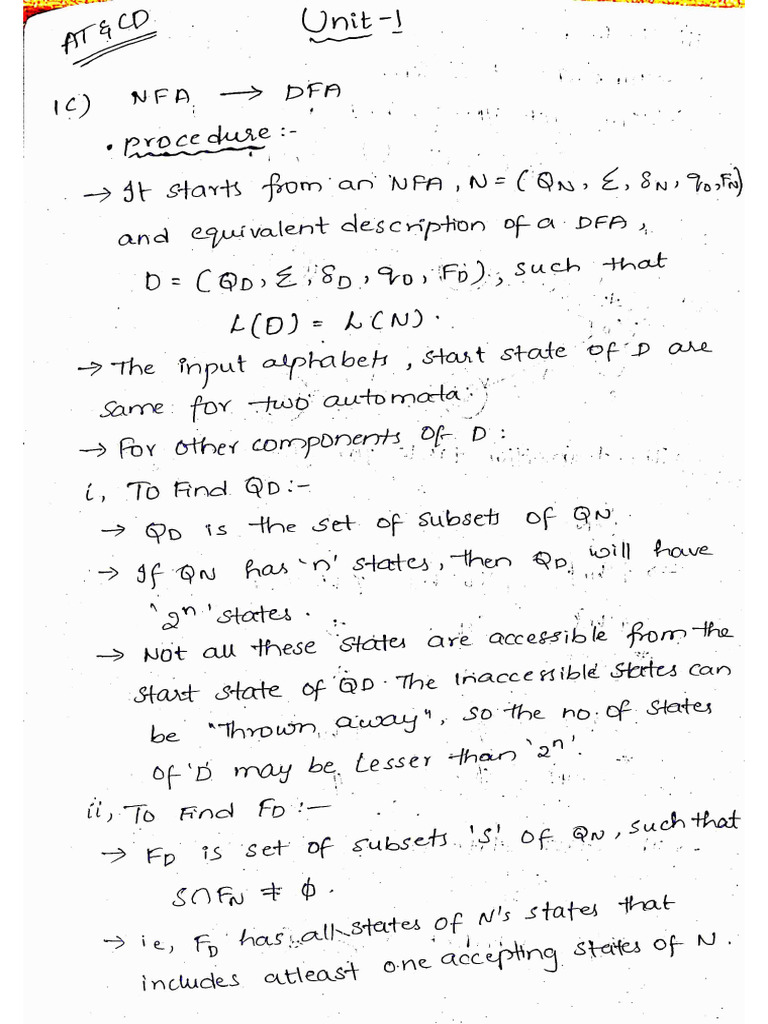 AT & CD
Unit-1
1C) NFA → DFA
• procedure :-
→ It starts from an NFA, N = (QN, Σ, δN, q0, FN)
and equivalent description of a DFA,
D = (QD, Σ, δD, q0, FD), such that
L(D) = L(N).
→ The input alphabets, start state of D are
same for two automata.
→ For other components of D:
i, To Find QD:-
→ QD is the set of subsets of QN.
→ If QN has 'n' states, then QD will have
'2ⁿ' states.
→ Not all these states are accessible from the
start state of QD. The inaccessible states can
be "Thrown away", so the no. of states
of 'D may be Lesser than '2ⁿ'.
ii, To Find FD :-
→ FD is set of subsets 'S' of QN, such that
S∩FN ≠ ϕ.
→ ie, FD has all states of N's states that
includes atleast one accepting states of N.